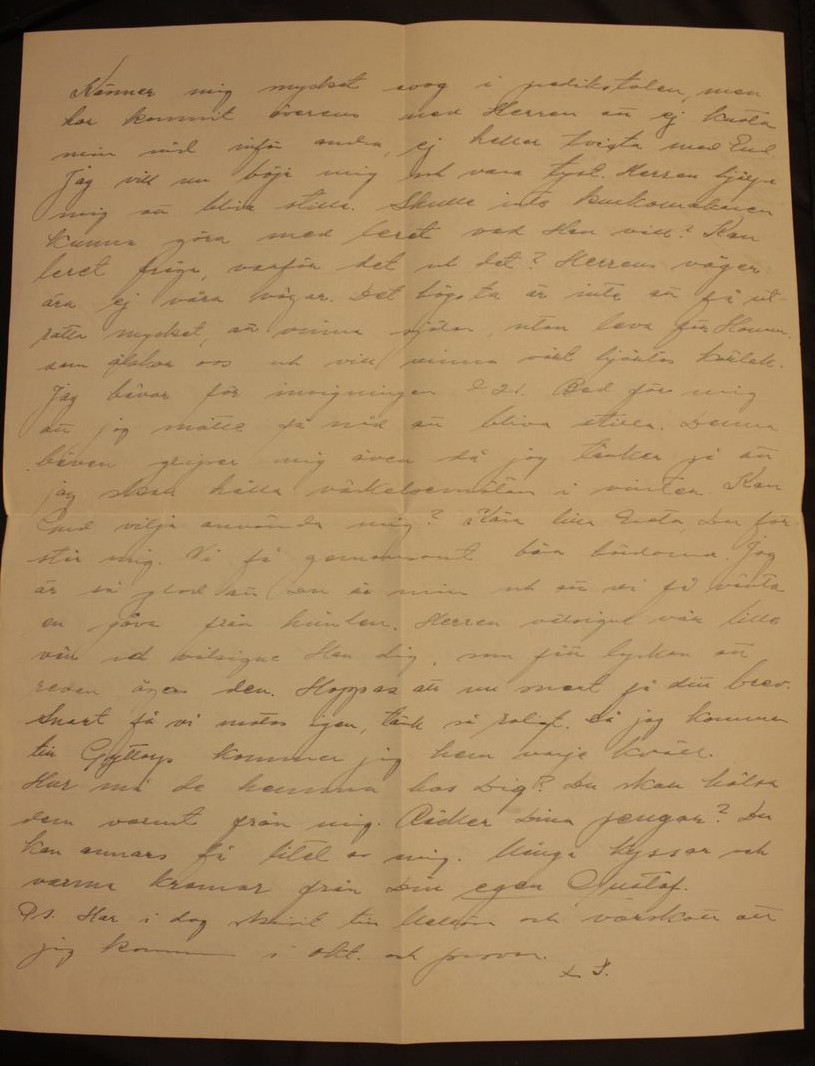 Känner mig mycket svag i predikstolen, men
har kommit överens med Herren att ej kasta
min nöd inför andra, ej heller tvista med Gud.
Jag vill nu böja mig och vara tyst. Herren hjälpe
mig att bliva stilla. Skulle inte krukomakaren
kunna göra med leret vad Han vill? Kan
leret fråga, varför det och det? Herrens vägar
äro ej våra vägar. Det högsta är inte att få ut-
rätta mycket, att vinna själar, utan leva för Honom,
som älskar oss och vill vinna vårt hjärtas kärlek.
Jag bävar för invigningen d 21. Bed för mig
att jag måtte få nåd att bliva stilla. Denna
bävan griper mig även då jag tänker på att
jag skall hålla väckelsemöten i vinter. Kan
Gud vilja använda mig? Kära lilla Du för-
står mig. Vi få gemensamt bära bördorna. Jag
är så glad att Du är min och att vi få vänta
en gåva från himlen. Herren välsigne vår lilla
vän och välsigne Han dig, som fått lyckan att
redan äga den. Hoppas att nu snart få ditt brev.
Snart få vi mötas igen, tänk så roligt. Då jag kommer
till Gyttorp kommer jag hem varje kväll.
Hur må de hemma hos Dig? Du skall hälsa
dem varmt från mig. Räcker Dina pengar? Du
kan annars få litet av mig. Många kyssar och
varma kramar från Din egen Gustaf.
Ps. Har i dag skrivit till och att
jag kommer i okt. och provar.